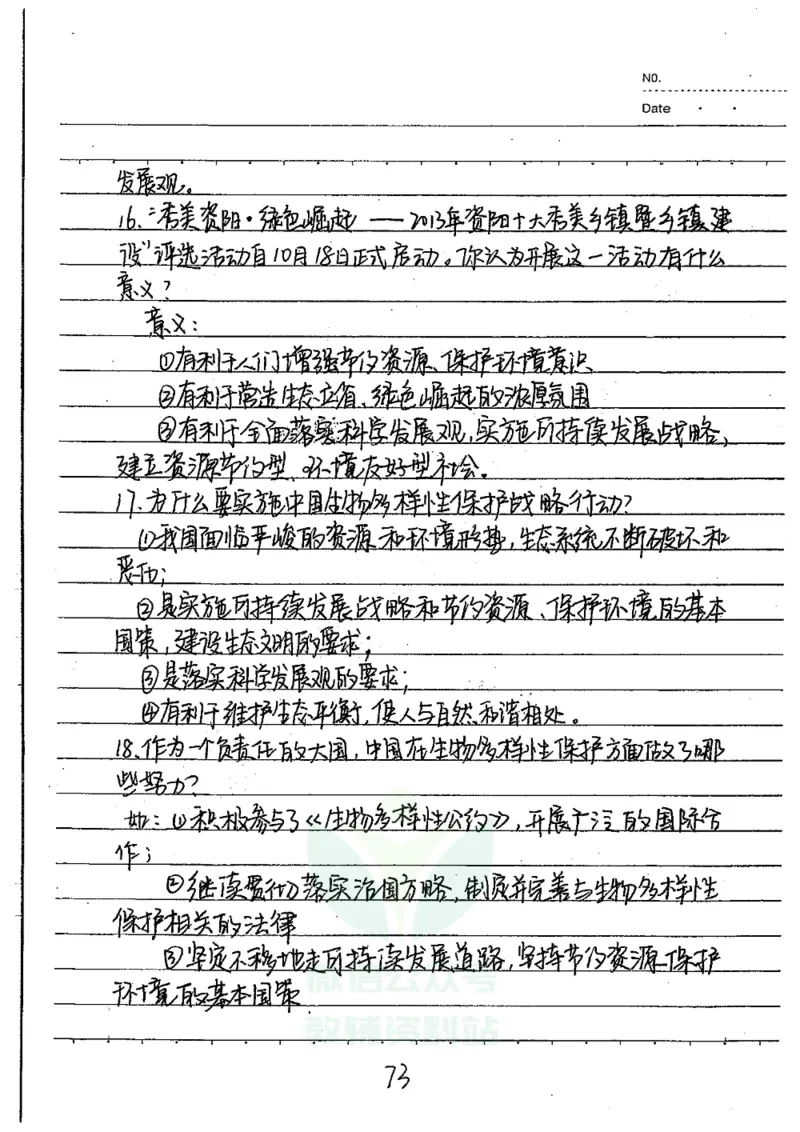 NO.
Date
发展观。
16、"秀美资阳·绿色崛起 —— 2013年资阳十大秀美乡镇暨乡镇建
设"评选活动自10月18日正式启动。你认为开展这一活动有什么
意义?
意义:
①有利于人们增强节约资源、保护环境意识
②有利于营造生态立省、绿色崛起的浓厚氛围
③有利于全面落实科学发展观,实施可持续发展战略,
建立资源节约型、环境友好型社会。
17、为什么要实施中国生物多样性保护战略行动?
①我国面临严峻的资源和环境形势,生态系统不断破坏和
恶化;
②是实施可持续发展战略和节约资源、保护环境的基本
国策,建设生态文明的要求;
③是落实科学发展观的要求;
④有利于维护生态平衡,使人与自然和谐相处。
18、作为一个负责任的大国,中国在生物多样性保护方面做了哪
些努力?
如:①积极参与了《生物多样性公约》,开展广泛的国际合
作;
②继续贯彻落实治国方略,制定并完善与生物多样性
保护相关的法律
③坚定不移地走可持续发展道路,坚持节约资源、保护
环境的基本国策
微信公众号
教辅资料站
73